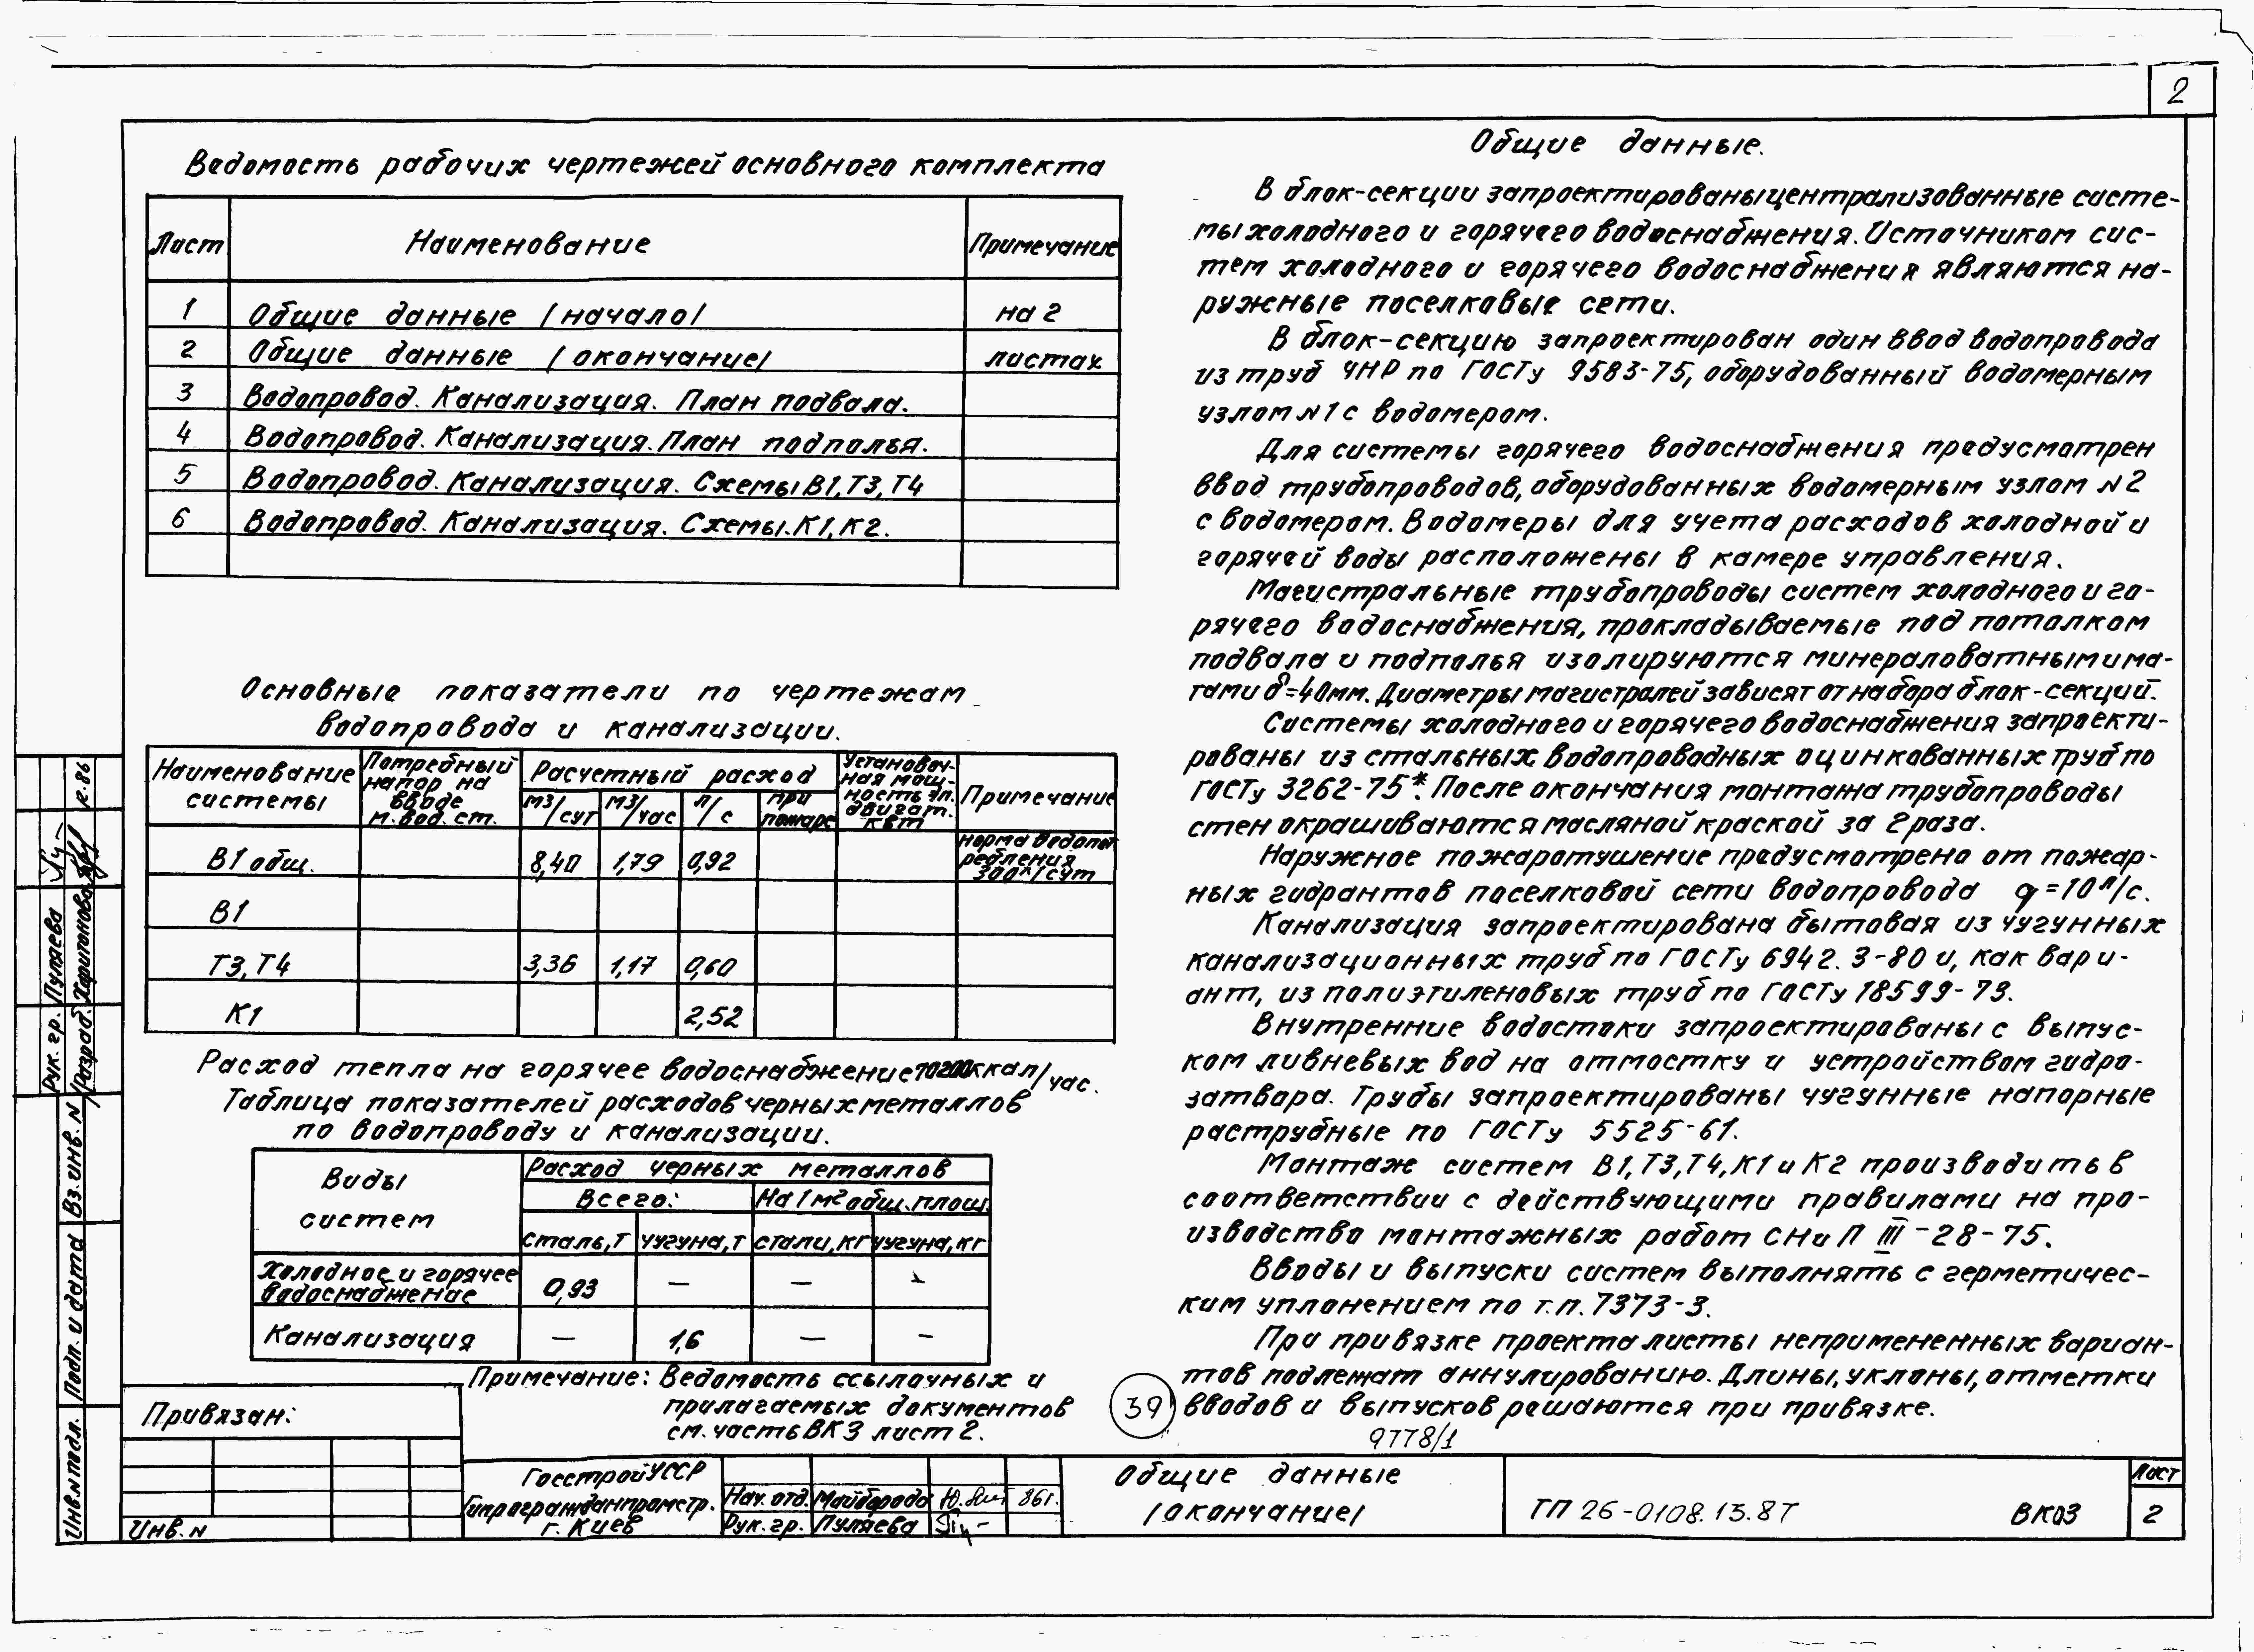 2
Ведомость рабочих чертежей основного комплекта
Лист Наименование Примечание
1 Общие данные /начало/ на 2
2 Общие данные /окончание/ листах
3 Водопровод. Канализация. План подвала.
4 Водопровод. Канализация. План подполья.
5 Водопровод. Канализация. Схемы В1, Т3, Т4
6 Водопровод. Канализация. Схемы. К1, К2.
Основные показатели по чертежам
водопровода и канализации.
Наименование системы Потребный напор на вводе м. вод. ст. Расчетный расход Установоч-ная мощ-ность эл. двигат. квт Примечание
м3/сут м3/час л/с при пожаре
В1 общ. 8,40 1,79 0,92 норма водопот ребления 300л/сут
В1
Т3, Т4 3,36 1,17 0,60
К1 2,52
Расход тепла на горячее водоснабжение 70200 ккал/час.
Таблица показателей расходов черных металлов
по водопроводу и канализации.
Виды систем Расход черных металлов
Всего: На 1м2 общ. площ.
сталь, т чугуна, т стали, кг чугуна, кг
Холодное и горячее водоснабжение 0,93 — — —
Канализация — 1,6 — —
Примечание: Ведомость ссылочных и
прилагаемых документов
см. часть ВК3 лист 2.
Общие данные.
В блок-секции запроектированы централизованные систе-
мы холодного и горячего водоснабжения. Источником сис-
тем холодного и горячего водоснабжения являются на-
ружные поселковые сети.
В блок-секцию запроектирован один ввод водопровода
из труб ЧНР по ГОСТу 9583-75, оборудованный водомерным
узлом N1 с водомером.
Для системы горячего водоснабжения предусмотрен
ввод трубопроводов, оборудованных водомерным узлом N2
с водомером. Водомеры для учета расходов холодной и
горячей воды расположены в камере управления.
Магистральные трубопроводы систем холодного и го-
рячего водоснабжения, прокладываемые под потолком
подвала и подполья изолируются минераловатными ма-
тами δ=40мм. Диаметры магистралей зависят от набора блок-секций.
Системы холодного и горячего водоснабжения запроекти-
рованы из стальных водопроводных оцинкованных труб по
ГОСТу 3262-75*. После окончания монтажа трубопроводы
стен окрашиваются масляной краской за 2 раза.
Наружное пожаротушение предусмотрено от пожар-
ных гидрантов поселковой сети водопровода q=10л/с.
Канализация запроектирована бытовая из чугунных
канализационных труб по ГОСТу 6942.3-80 и, как вари-
ант, из полиэтиленовых труб по ГОСТу 18599-73.
Внутренние водостоки запроектированы с выпус-
ком ливневых вод на отмостку и устройством гидро-
затвора. Трубы запроектированы чугунные напорные
раструбные по ГОСТу 5525-61.
Монтаж систем В1, Т3, Т4, К1 и К2 производить в
соответствии с действующими правилами на про-
изводство монтажных работ СНиП III-28-75.
Вводы и выпуски систем выполнять с герметичес-
ким уплонением по т.п. 7373-3.
При привязке проекта листы непримененных вариан-
тов подлежат аннулированию. Длины, уклоны, отметки
вводов и выпусков решаются при привязке.
39
9778/1
Рук. гр. Пуляева
Разраб. Харитонова
R.86
Вз. инв. N
Подп. и дата
Инв. N подл.
Привязан:
Инв. N
Госстрой УССР
Гипрогражданпромстр.
г. Киев
Нач. отд. Майборода 86г.
Рук. гр. Пуляева
Общие данные
/окончание/
ТП 26-0108.13.87 ВК03
Лист
2